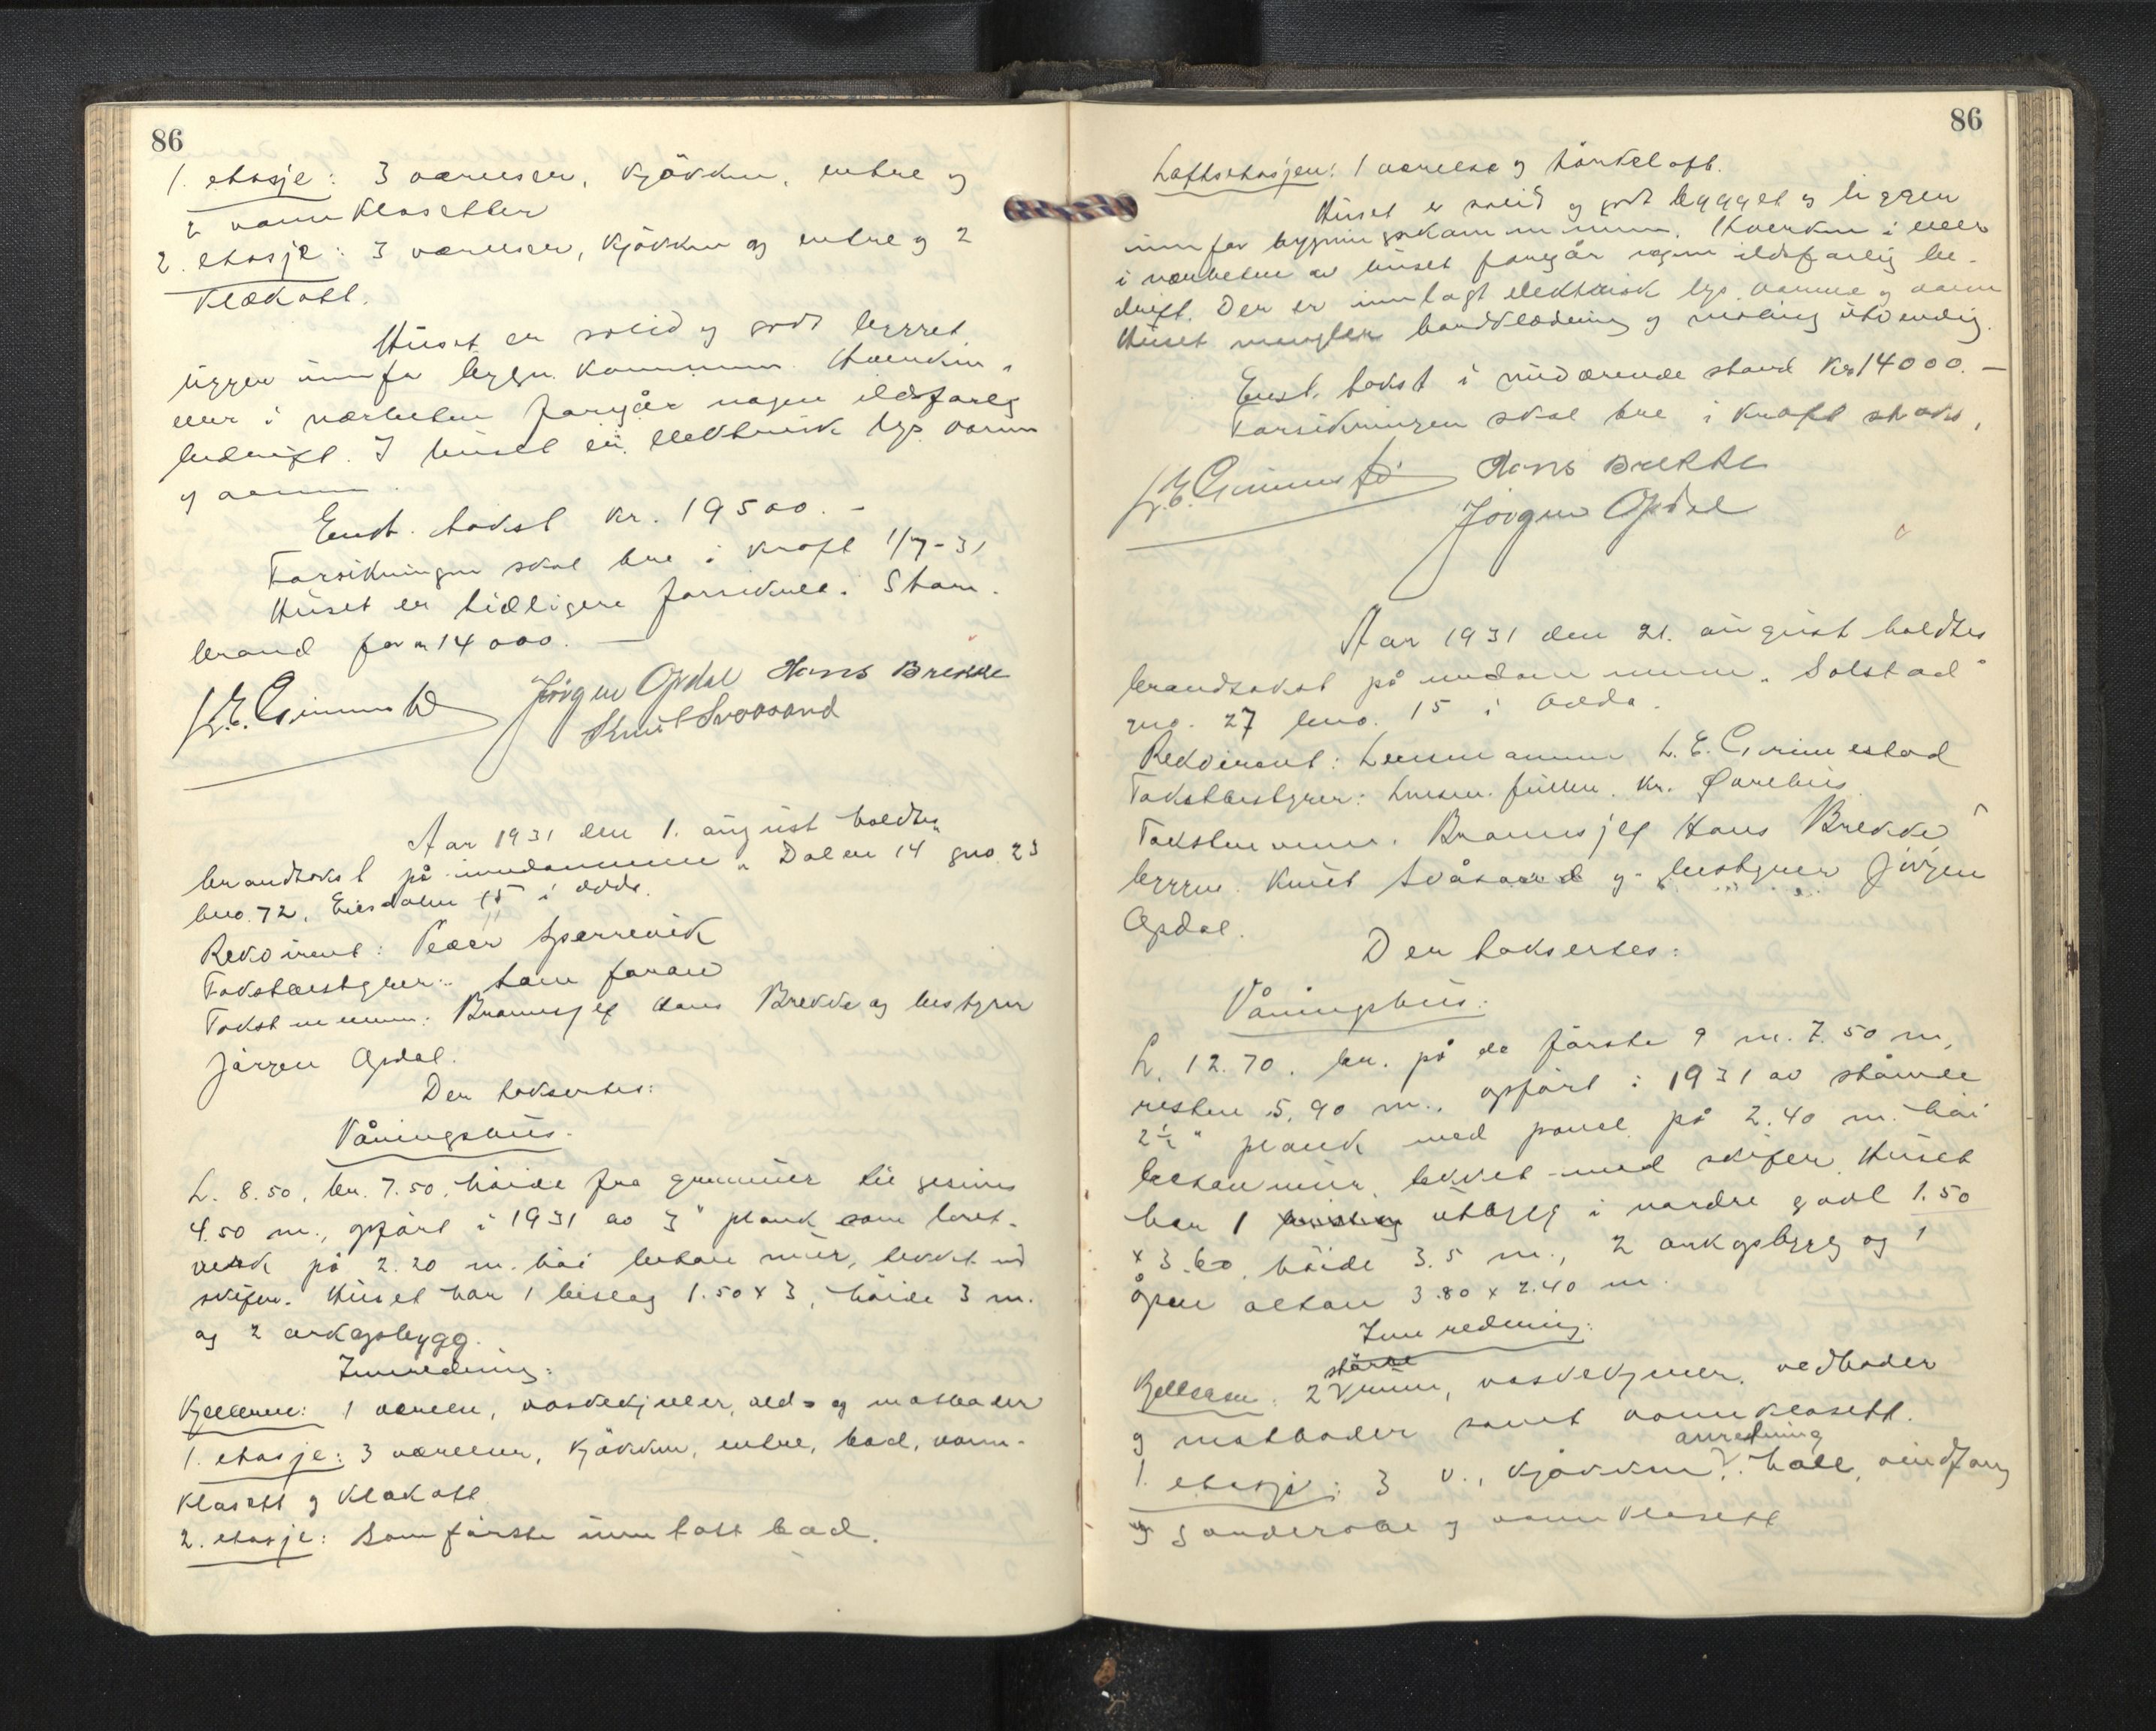 86
1. etasje: 3 værelser, kjökken, entre og
2 vannklosetter
2. etasje: 3 værelser, kjökken og entre og 2
klækott.
Huset er solid og godt bygget
ligger innfor bygn. kommunen. Hverken i
eller i nærheten foregår nogen ildsfarlig
bedrift. I huset er elektrisk lys varme
og vann.
Enst. takst kr. 19500.-
Forsikringen skal tre i kraft 1/7-31
Huset er tidligere forsikret i Stor-
brand for kr 14000.—
L. E. Grimestad Jörgen Opdal Hans Brekke
Knut Svåsand
Aar 1931 den 1. august holdtes
brandtakst på eiendommen "Dalen 14 gno. 23
bno. 72, Eiesdalen 15" i Odda.
Rekvirent: Peder Sperrevik
Takstbestyrer: som foran
Takstmenn: Brannsjef Hans Brekke og bestyrer
Jörgen Opdal.
Der taksertes:
Våningshus.
L. 8.50, br. 7.50, höide fra grunnmur til gesims
4.50 m., opfört i 1931 av 3" plank som loret-
verk på 2.20 m. höi betonmur, tekket med
skifer. Huset har 1 bislag 1.50 x 3, höide 3 m.
og 2 arkopbygg.
Innredning:
Kjelleren: 1 værelse, vaskekjeller, ved- og matboder
1. etasje: 3 værelser, kjökken, entre, bad, vann-
klosett og klækott
2. etasje: Som förste inntatt bad.
86
Loftsetasjen: 1 værelse og törkeloft.
Huset er solid og godt bygget og ligger
innfor bygningskommunen. Hverken i eller
i nærheten av huset foregår nogen ildsfarlig be-
drift. Der er innlagt elektrisk lys, varme og vann
Huset mangler bordklædning og maling utvendig.
Enst. takst i nuværende stand kr 14000.—
Forsikringen skal tre i kraft straks.
L. E. Grimestad Hans Brekke
Jörgen Opdal
Aar 1931 den 21. august holdtes
brandtakst på eiendommen "Solstad"
gno. 27 bno. 15 i Odda.
Rekvirent: Lensmannen L. E. Grimestad
Takstbestyrer: Lensm. fullm. Kr. Øvrebus
Takstmenn: Brannsjef Hans Brekke
byggm. Knut Svåsand og bestyrer Jörgen
Opdal.
Der taksertes:
Våningshus:
L. 12.70. br. på de förste 9 m. 7.50 m,
resten 5.90 m., opfört i 1931 av stående
2½" plank med panel på 2.40 m. höi
betonmur, tekket med skifer. Huset
har 1 utbygg i nordre gavl 1.50
x 3.60, höide 3.5 m., 2 arkopbygg og 1
åpen altan 3.80 x 2.40 m.
Innredning:
Kjelleren: 2 större rum, vaskekjeller, vedboder
og matboder samt vannklosett.
1. etasje: 3 v., kjökken, anretning, hall, vindfang
og garderobe og vannklosett